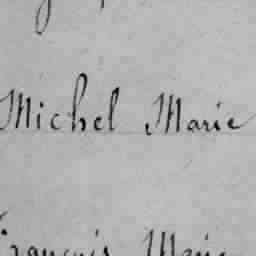 Michel Marie
François Marie